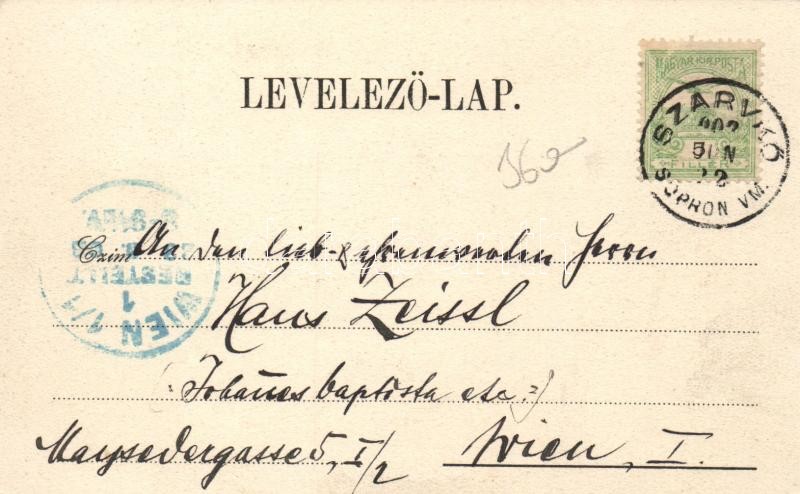 LEVELEZŐ-LAP.
MAGYAR KIR. POSTA
FILLER
SZARVKŐ
902
JUN
22
SOPRON VM.
360
WIEN 1/1
1
BESTELLT
Czim
An den lieb- & ehrenwerten Herrn
Hans Zeissl
(Johannes baptista etc:)
Maysedergasse 5, I/2 Wien, I.